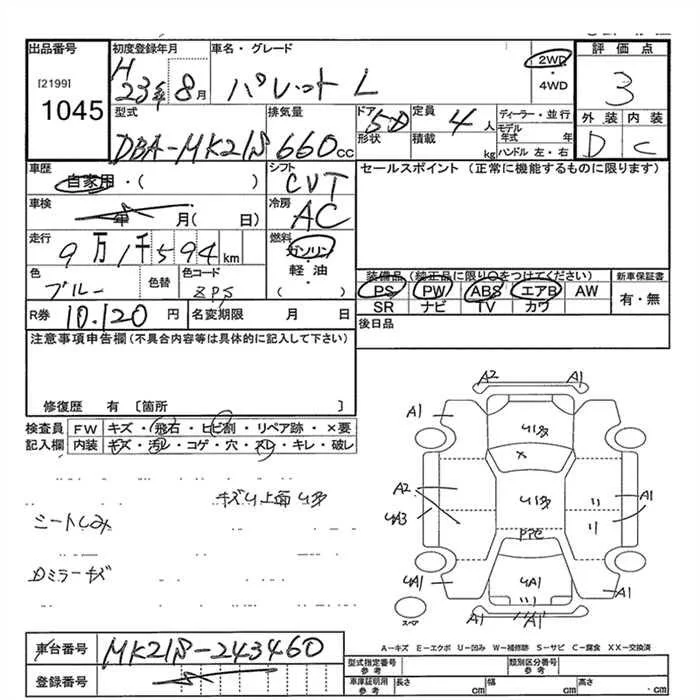 出品番号 初度登録年月 車名・グレード 2WD ・ 4WD 評価点
[2199] 1045 H 23年 8月 パレット L 3
型式 排気量 ドア 形状 定員 積載 ディーラー・並行 外装 内装
DBA-MK21S 660cc 5D 4人 kg モデル年式 年 ハンドル 左・右 D C
車歴 自家用・( ) シフト CVT セールスポイント (正常に機能するものに限ります)
車検 年 月( 日) 冷房 AC
走行 9万1千594km 燃料 ガソリン・軽油・( )
色 ブルー 色替 色コード ZPS
装備品 (純正品に限り○をつけてください) 新車保証書
PS PW ABS エアB AW 有・無
SR ナビ TV カワ
R券 10.120円 名変期限 月 日 後日品
注意事項申告欄(不具合内容等は具体的に記入して下さい)
修復歴 有 〔箇所 〕
検査員 FW キズ・飛石・ヒビ割・リペア跡・×要
記入欄 内装 キズ・汚レ・コゲ・穴・スレ・キレ・破レ
キズU上面U多
シートしみ
Dミラーキズ
A2 A1
A1 U1多 A1
×
A2 U1多 A1
UA3
UA1 UA1 A1
A1
スペア
A-キズ E-エクボ U-凹み W-補修跡 S-サビ C-腐食 XX-交換済
車台番号 MK21S-243460
登録番号
型式指定番号 参考 類別区分番号 参考
車庫証明用 参考 長さ cm 幅 cm 高さ ・cm